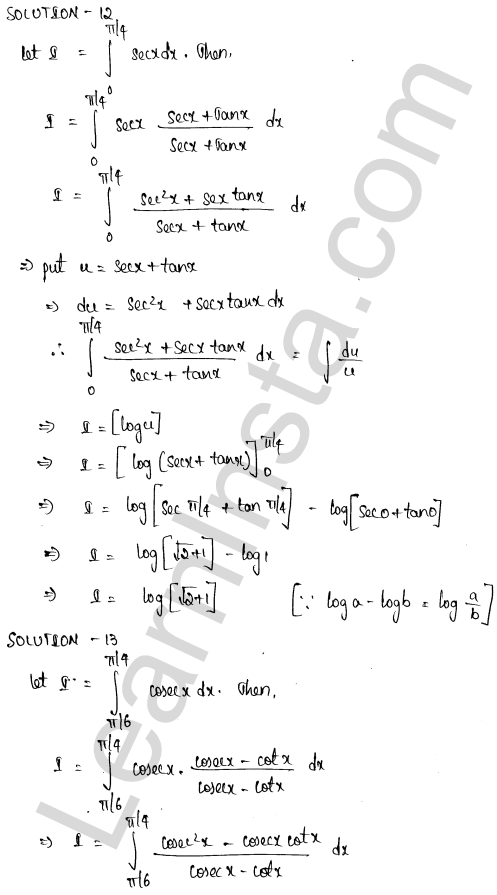 SOLUTION - 12
let I = ∫₀^{π/4} secx dx. Then,
I = ∫₀^{π/4} secx (secx + tanx)/(secx + tanx) dx
I = ∫₀^{π/4} (sec²x + sex tanx)/(secx + tanx) dx
⇒ put u = secx + tanx
⇒ du = sec²x + secx tanx dx
∴ ∫₀^{π/4} (sec²x + secx tanx)/(secx + tanx) dx = ∫ du/u
⇒ I = [log u]
⇒ I = [log (secx + tanx)]₀^{π/4}
⇒ I = log[sec π/4 + tan π/4] - log[sec0 + tan0]
⇒ I = log[√2+1] - log1
⇒ I = log[√2+1] [∵ log a - log b = log a/b]
SOLUTION - 13
let I = ∫_{π/6}^{π/4} cosecx dx. Then,
I = ∫_{π/6}^{π/4} cosecx . (cosecx - cotx)/(cosecx - cotx) dx
⇒ I = ∫_{π/6}^{π/4} (cosec²x - cosecx cotx)/(cosecx - cotx) dx
LearnInsta.com